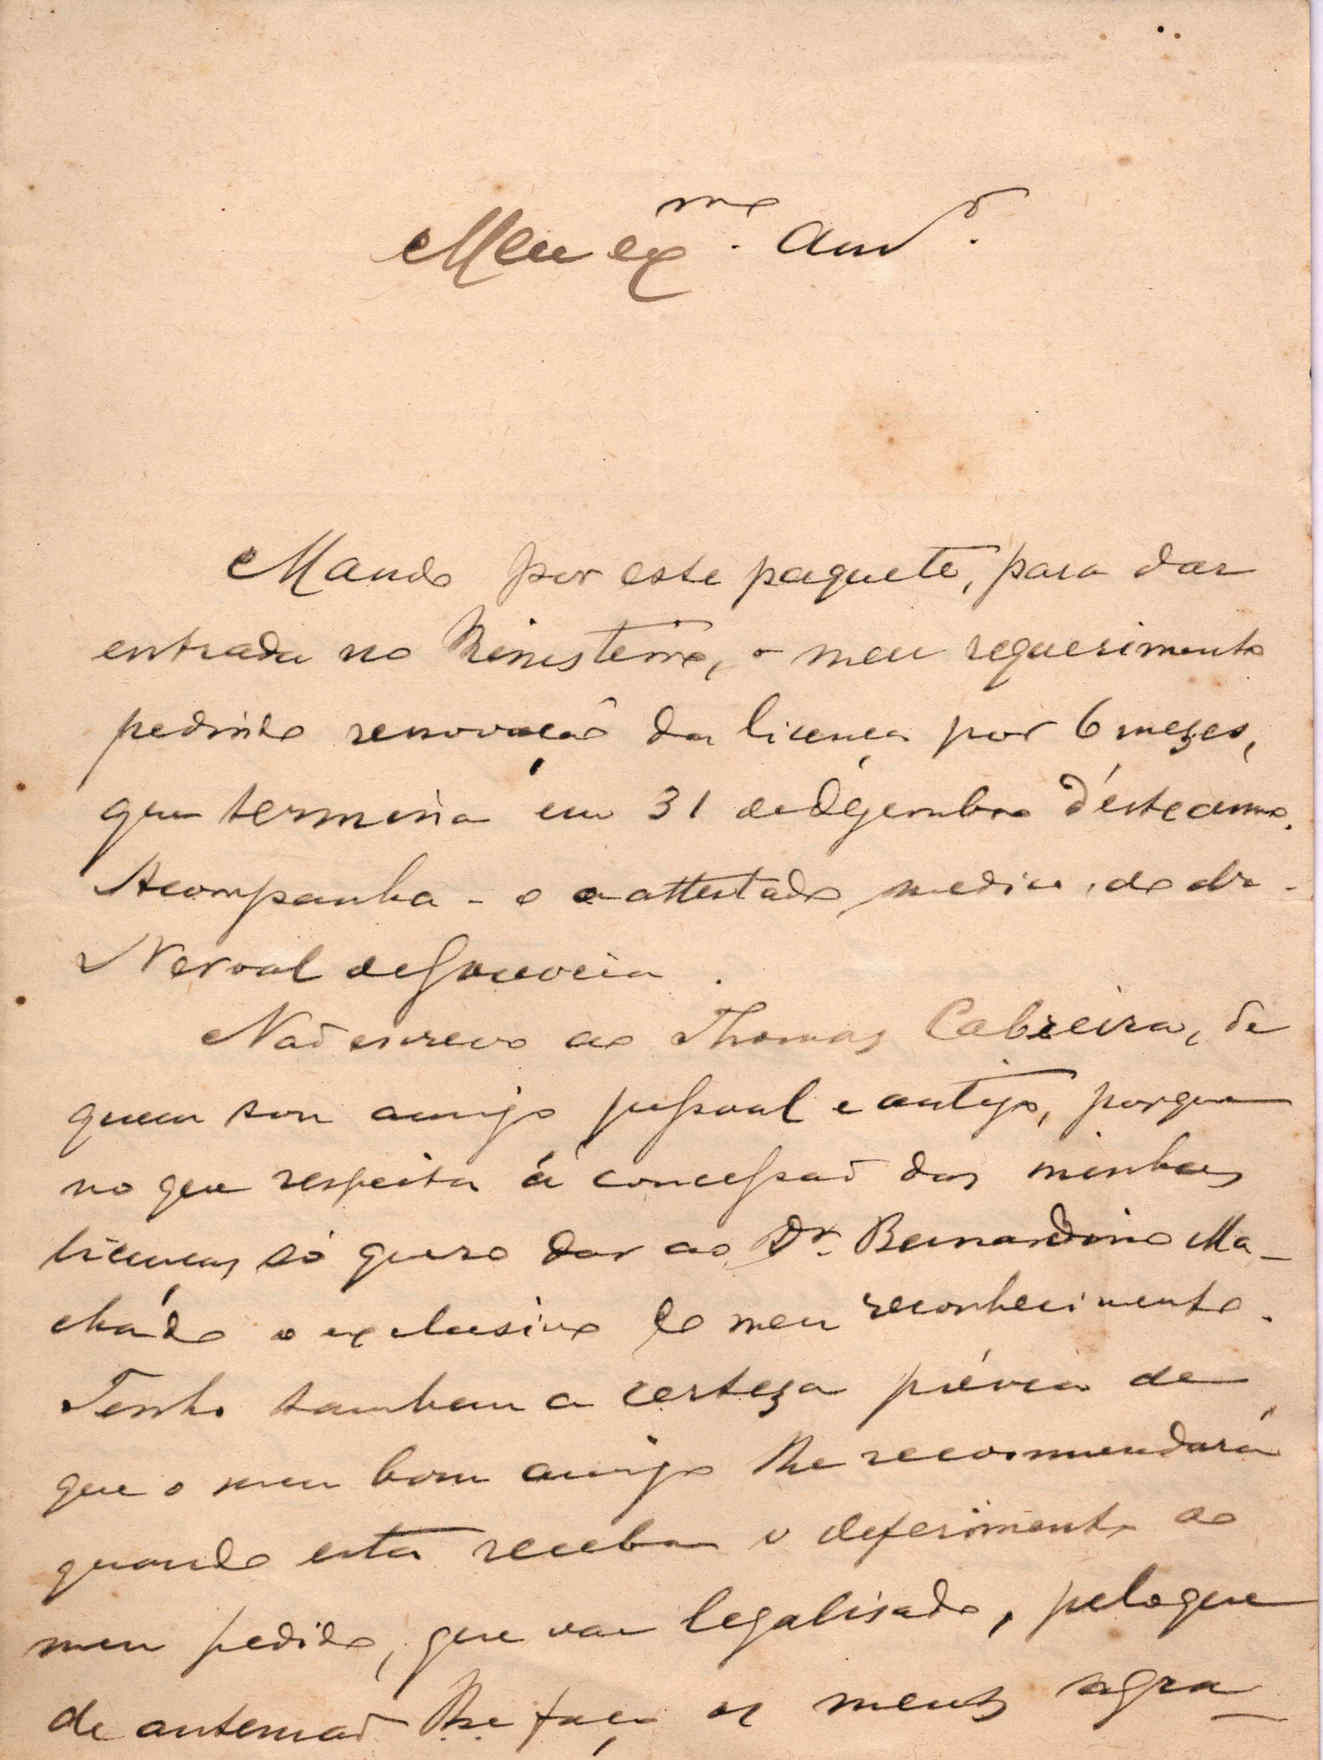 Meu ex.mo Am.o
Mando por este paquete, para dar
entrada no Ministerio, o meu requerimento
pedindo renovação da licença por 6 mezes,
que termina em 31 de Dezembro d'este anno.
Acompanha-o o attestado medico, do dr.
Nerval de Gouveia.
Não escrevo ao Thomaz Cabreira, de
quem sou amigo pessoal e antigo, porque
no que respeita á concessão das minhas
licenças só quero dar ao Dr. Bernardino Ma-
chado o exclusivo do meu reconhecimento.
Tenho tambem a certeza prévia de
que o meu bom amigo lhe recommendará
quando esta receba o deferimento ao
meu pedido, que vae legalisado, pelo que
de antemão lhe faço os meus agra-